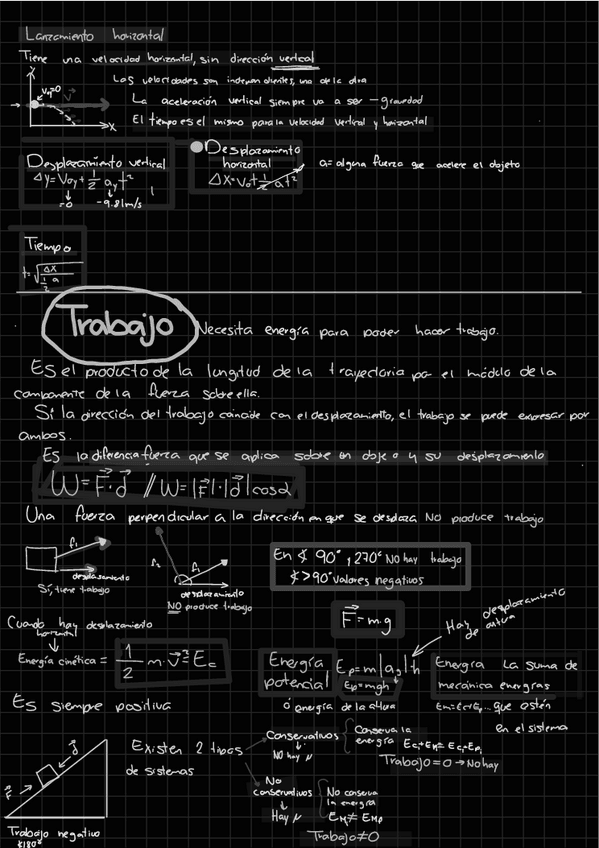 Lanzamiento horizontal
Tiene una velocidad horizontal, sin dirección vertical
Las velocidades son independientes, una de la otra
La aceleración vertical siempre va a ser -gravedad
El tiempo es el mismo para la velocidad vertical y horizontal
Y
V₀y=0
V
X
Desplazamiento vertical
Δy = V₀y + 1/2 ay t²
=0 -9.81m/s
Desplazamiento
horizontal
ΔX = V₀t + 1/2 at²
a = alguna fuerza que acelere el objeto
Tiempo
t = √(ΔX / 1/2 a)
Trabajo
Necesita energía para poder hacer trabajo.
Es el producto de la longitud de la trayectoria por el módulo de la
componente de la fuerza sobre ella.
Si la dirección del trabajo coincide con el desplazamiento, el trabajo se puede expresar por
ambos.
Es la diferencia fuerza que se aplica sobre un objeto y su desplazamiento
W = F⃗ · d⃗ // W = |F⃗| · |d⃗| cos α
Una fuerza perpendicular a la dirección en que se desplaza NO produce trabajo
f₁
desplasamiento
Sí, tiene trabajo
f₂
f₁
desplazamiento
NO produce trabajo
En ∢ 90°, 270° No hay trabajo
∢ > 90° valores negativos
F⃗ = m·g
Hay desplazamiento
de altura
Cuando hay desplazamiento
horizontal
Energía cinética = 1/2 m · v⃗² = Ec
Es siempre positiva
Energía
potencial
Ep = m|ag|h
Ep = mgh
ó energía de la altura
Energía
mecánica
La suma de
energías
Em = Ec + Ep ... que estén
en el sistema
d⃗
F⃗
Trabajo negativo
∢180°
Existen 2 tipos
de sistemas
Conservativos
No hay μ
Conserva la
energía Ec₁+Ep₁= Ec₂+Ep₂
Trabajo = 0 → No hay
No
conservativos
Hay μ
No conserva
la energía
EM ≠ EM₀
Trabajo ≠ 0